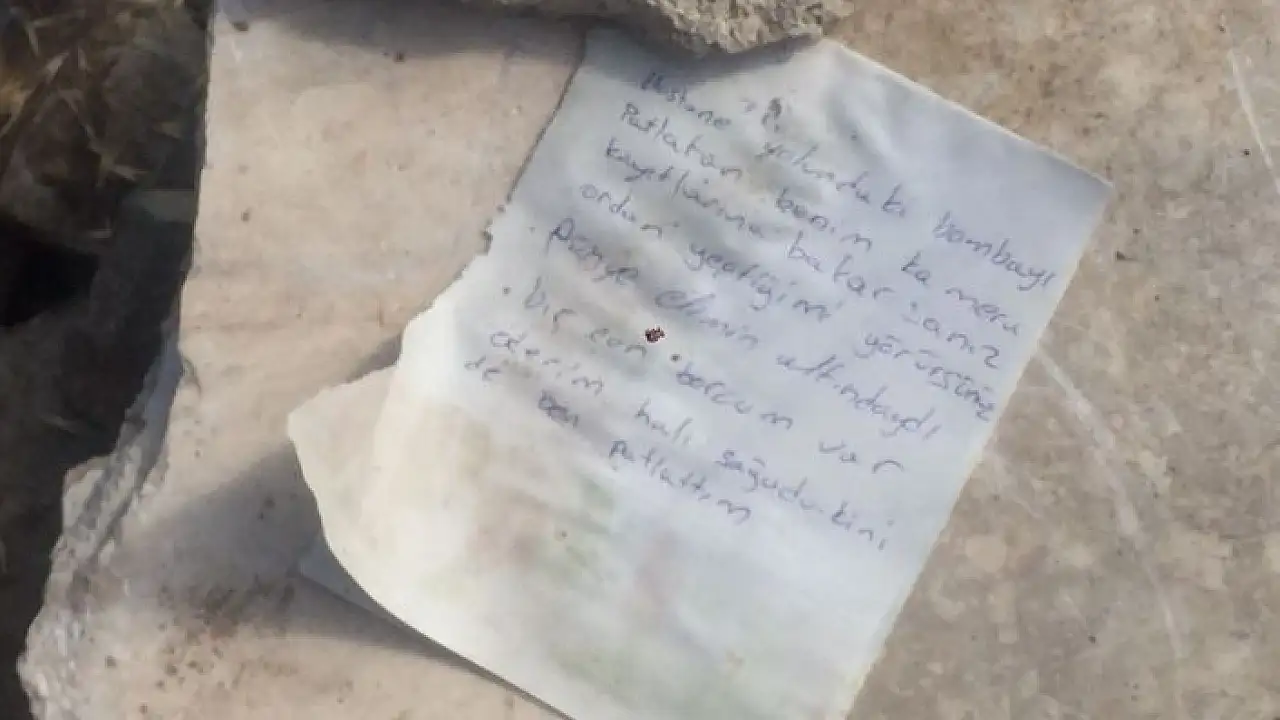 Hastane yolundaki bombayı
Patlatan benim kamera
kayıtlarına bakarsanız
ordan geçtiğimi görürsünüz
Pimye elimin altındaydı
bir can borcum var
ederim halı sağudakini
de ben patlattım